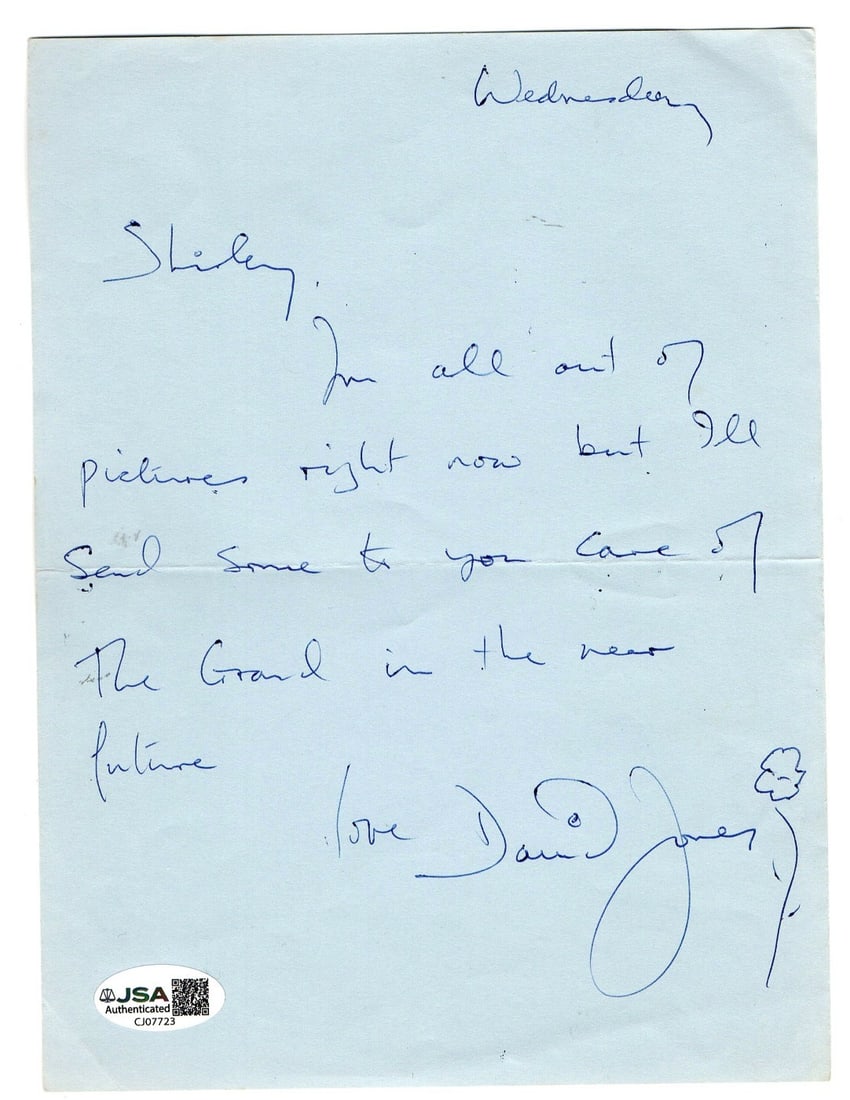 Wednesday
Shirley,
I'm all out of
pictures right now but I'll
send some to you care of
The Grand in the near
future
love David Jones
JSA
Authenticated
CJ07723